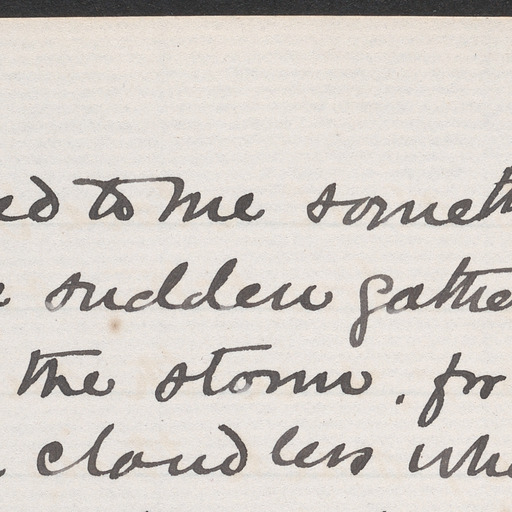 ed to me someth
sudden gathe
the storm. for
cloudless whe